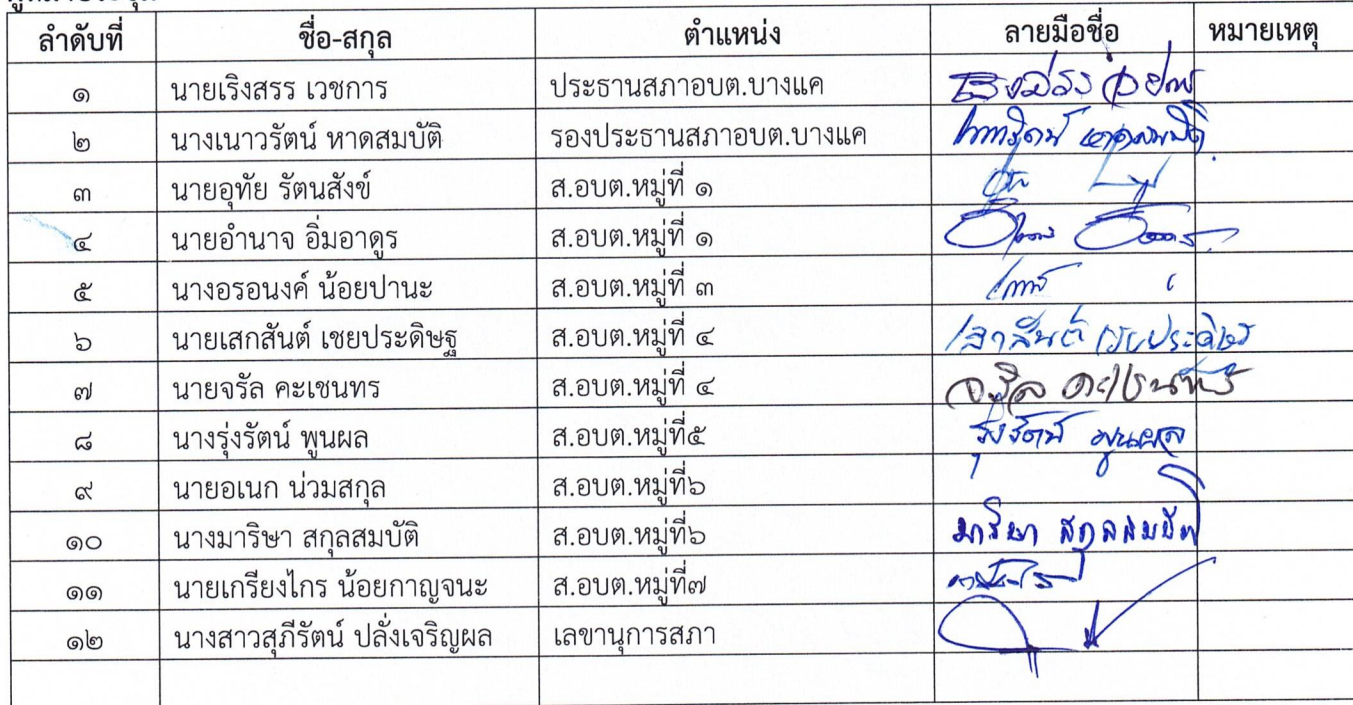 ลำดับที่ ชื่อ-สกุล ตำแหน่ง ลายมือชื่อ หมายเหตุ
๑ นายเริงสรร เวชการ ประธานสภาอบต.บางแค
๒ นางเนาวรัตน์ หาดสมบัติ รองประธานสภาอบต.บางแค เนาวรัตน์ หาดสมบัติ
๓ นายอุทัย รัตนสังข์ ส.อบต.หมู่ที่ ๑
๔ นายอำนาจ อิ่มอาดูร ส.อบต.หมู่ที่ ๑
๕ นางอรอนงค์ น้อยปานะ ส.อบต.หมู่ที่ ๓
๖ นายเสกสันต์ เชยประดิษฐ ส.อบต.หมู่ที่ ๔ เสกสันต์ เชยประดิษฐ
๗ นายจรัล คะเชนทร ส.อบต.หมู่ที่ ๔ จรัล คะเชนทร์
๘ นางรุ่งรัตน์ พูนผล ส.อบต.หมู่ที่๕ รุ่งรัตน์ พูนผล
๙ นายอเนก น่วมสกุล ส.อบต.หมู่ที่๖
๑๐ นางมาริษา สกุลสมบัติ ส.อบต.หมู่ที่๖ มาริษา สกุลสมบัติ
๑๑ นายเกรียงไกร น้อยกาญจนะ ส.อบต.หมู่ที่๗
๑๒ นางสาวสุภีรัตน์ ปลั่งเจริญผล เลขานุการสภา